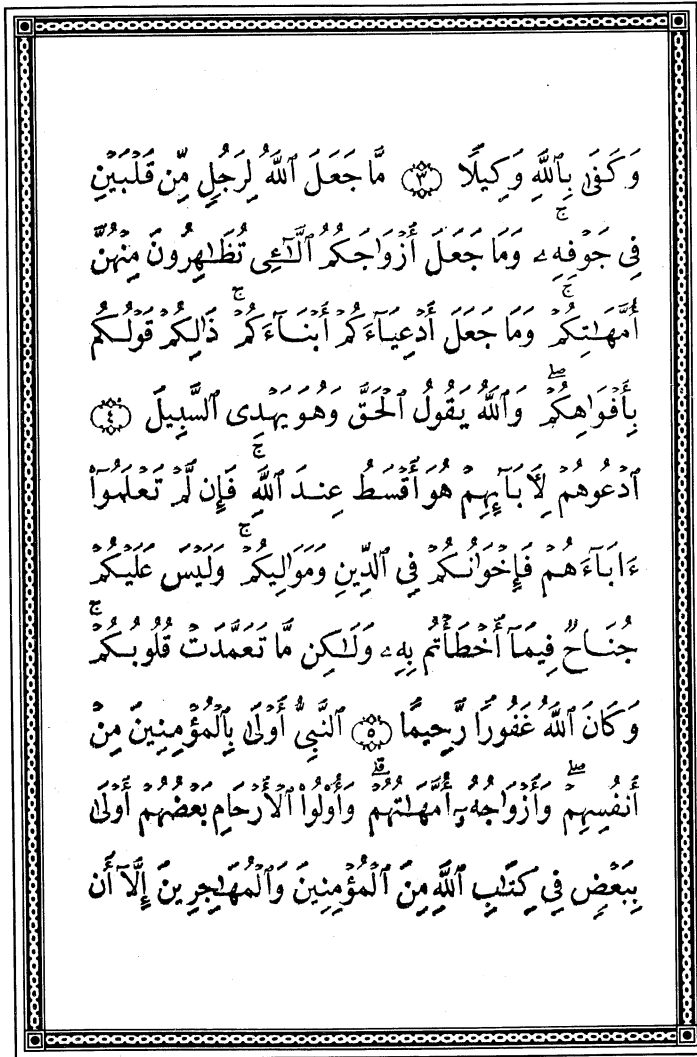 وَكَفَىٰ بِٱللَّهِ وَكِيلًا ﴿٣﴾ مَّا جَعَلَ ٱللَّهُ لِرَجُلٍ مِّن قَلْبَيْنِ
فِى جَوْفِهِۦ ۚ وَمَا جَعَلَ أَزْوَٰجَكُمُ ٱلَّٰٓـِٔى تُظَٰهِرُونَ مِنْهُنَّ
أُمَّهَٰتِكُمْ ۚ وَمَا جَعَلَ أَدْعِيَآءَكُمْ أَبْنَآءَكُمْ ۚ ذَٰلِكُمْ قَوْلُكُم
بِأَفْوَٰهِكُمْ ۖ وَٱللَّهُ يَقُولُ ٱلْحَقَّ وَهُوَ يَهْدِى ٱلسَّبِيلَ ﴿٤﴾
ٱدْعُوهُمْ لِءَابَآئِهِمْ هُوَ أَقْسَطُ عِندَ ٱللَّهِ ۚ فَإِن لَّمْ تَعْلَمُوٓا۟
ءَابَآءَهُمْ فَإِخْوَٰنُكُمْ فِى ٱلدِّينِ وَمَوَٰلِيكُمْ ۚ وَلَيْسَ عَلَيْكُمْ
جُنَاحٌ فِيمَآ أَخْطَأْتُم بِهِۦ وَلَٰكِن مَّا تَعَمَّدَتْ قُلُوبُكُمْ ۚ
وَكَانَ ٱللَّهُ غَفُورًا رَّحِيمًا ﴿٥﴾ ٱلنَّبِىُّ أَوْلَىٰ بِٱلْمُؤْمِنِينَ مِنْ
أَنفُسِهِمْ ۖ وَأَزْوَٰجُهُۥٓ أُمَّهَٰتُهُمْ ۗ وَأُو۟لُوا۟ ٱلْأَرْحَامِ بَعْضُهُمْ أَوْلَىٰ
بِبَعْضٍ فِى كِتَٰبِ ٱللَّهِ مِنَ ٱلْمُؤْمِنِينَ وَٱلْمُهَٰجِرِينَ إِلَّآ أَن